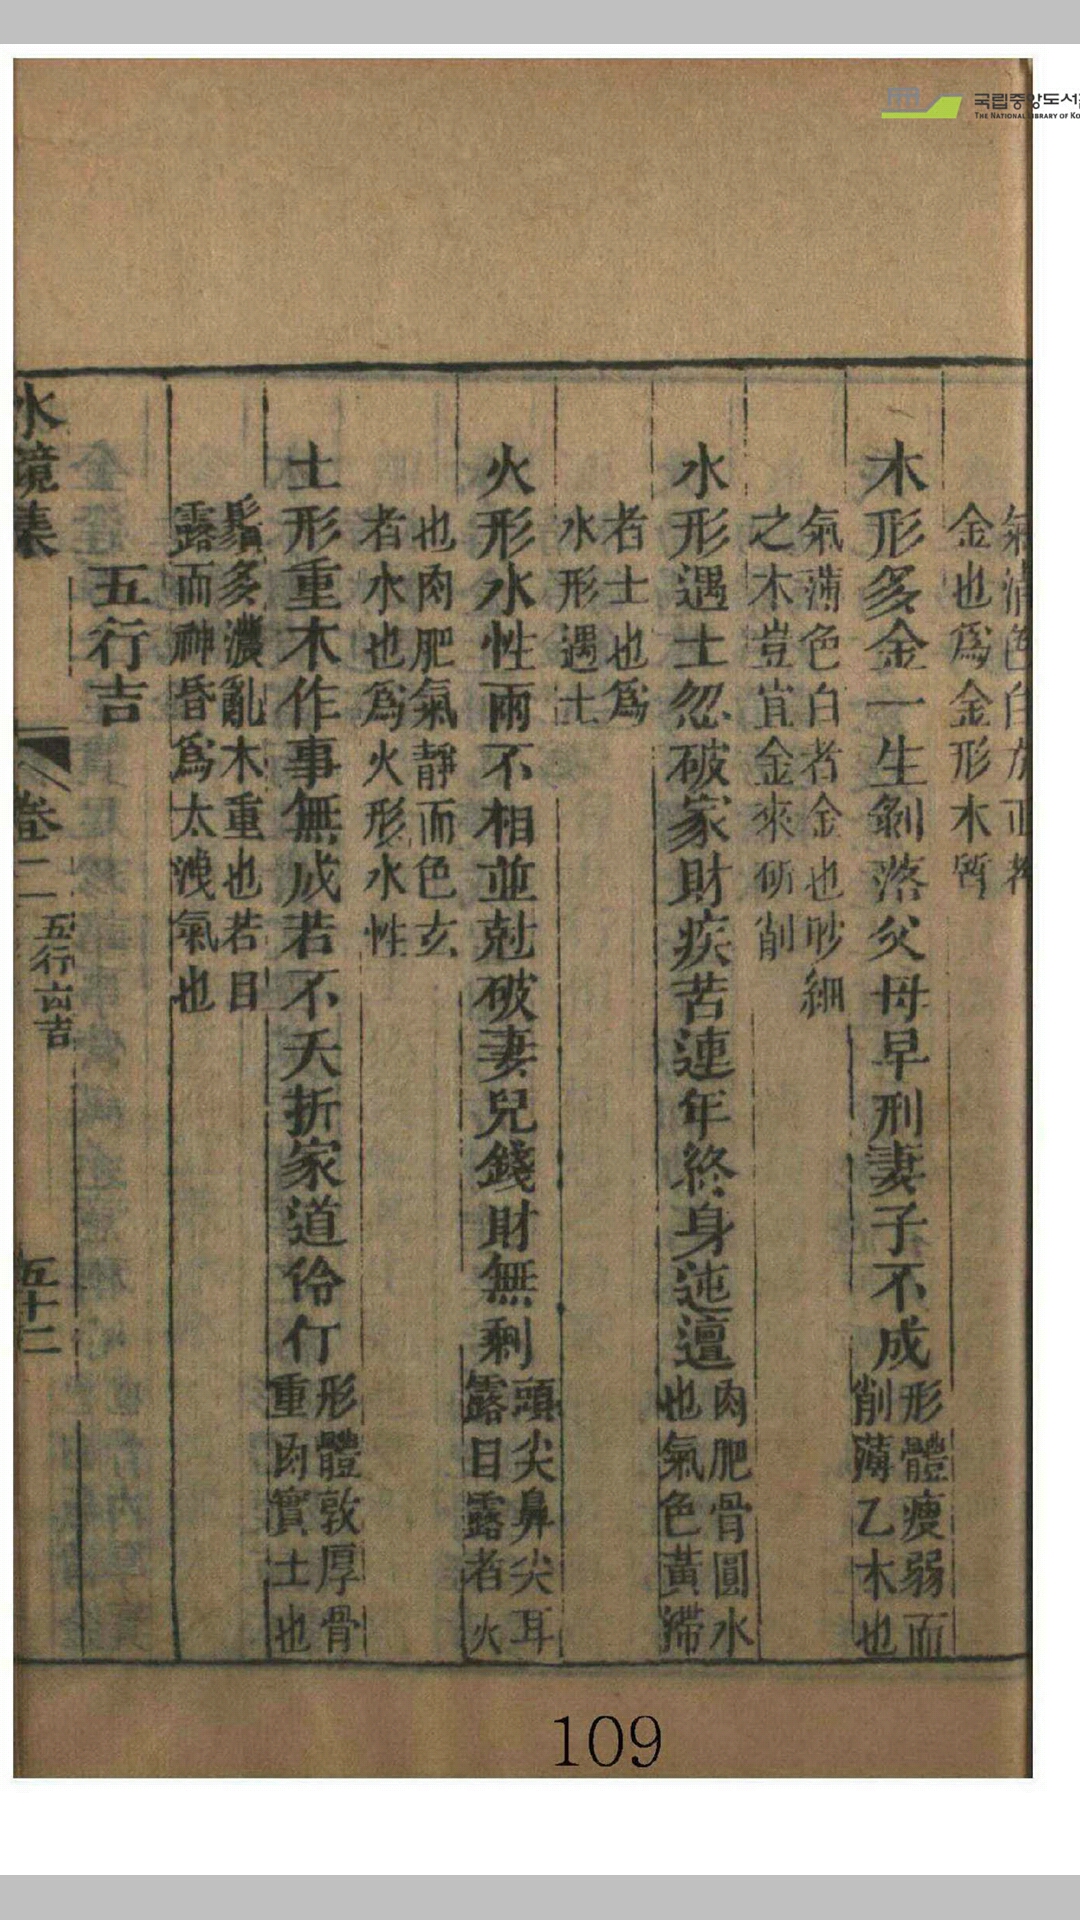 국립중앙도서
THE NATIONAL LIBRARY OF KO
氣清色白方正者
金也爲金形木質
木形多金一生剝落父母早刑妻子不成
形體瘦弱而
削薄乙木也
氣薄色白者金也眇細
之木豈宜金來斫削
水形遇土忽破家財疾苦連年終身迍邅
肉肥骨圓水
也氣色黃滯
者土也爲
水形遇土
火形水性兩不相並尅破妻兒錢財無剩
頭尖鼻尖耳
露目露者火
也肉肥氣靜而色玄
者水也爲火形水性
土形重木作事無成若不夭折家道伶仃
形體敦厚骨
重肉實土也
鬚多濃亂木重也若目
露而神昏爲太洩氣也
五行吉
水鏡集
卷二
五行六吉
五十二
109